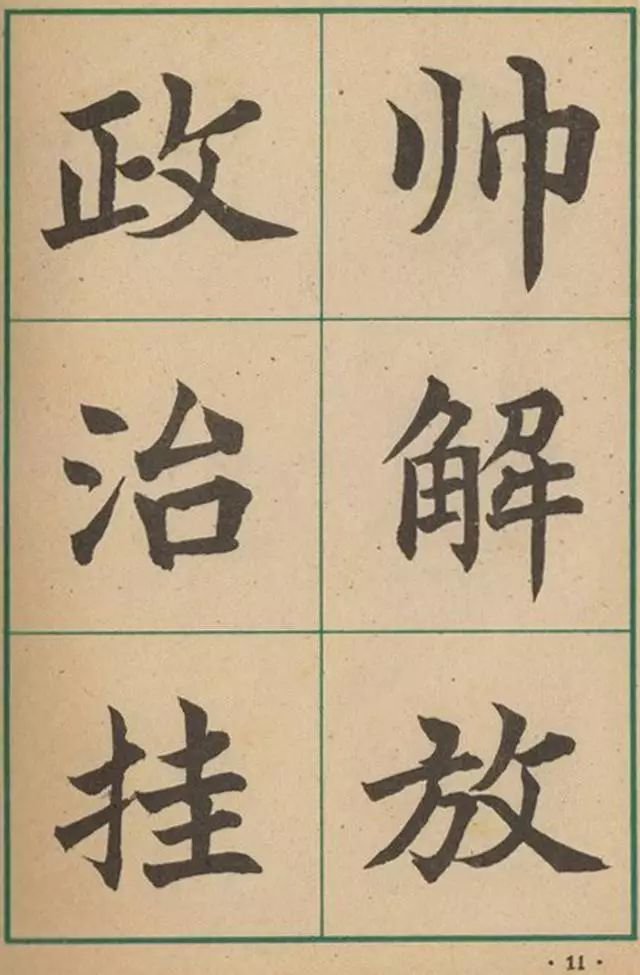 帅解放
政治挂
·11·